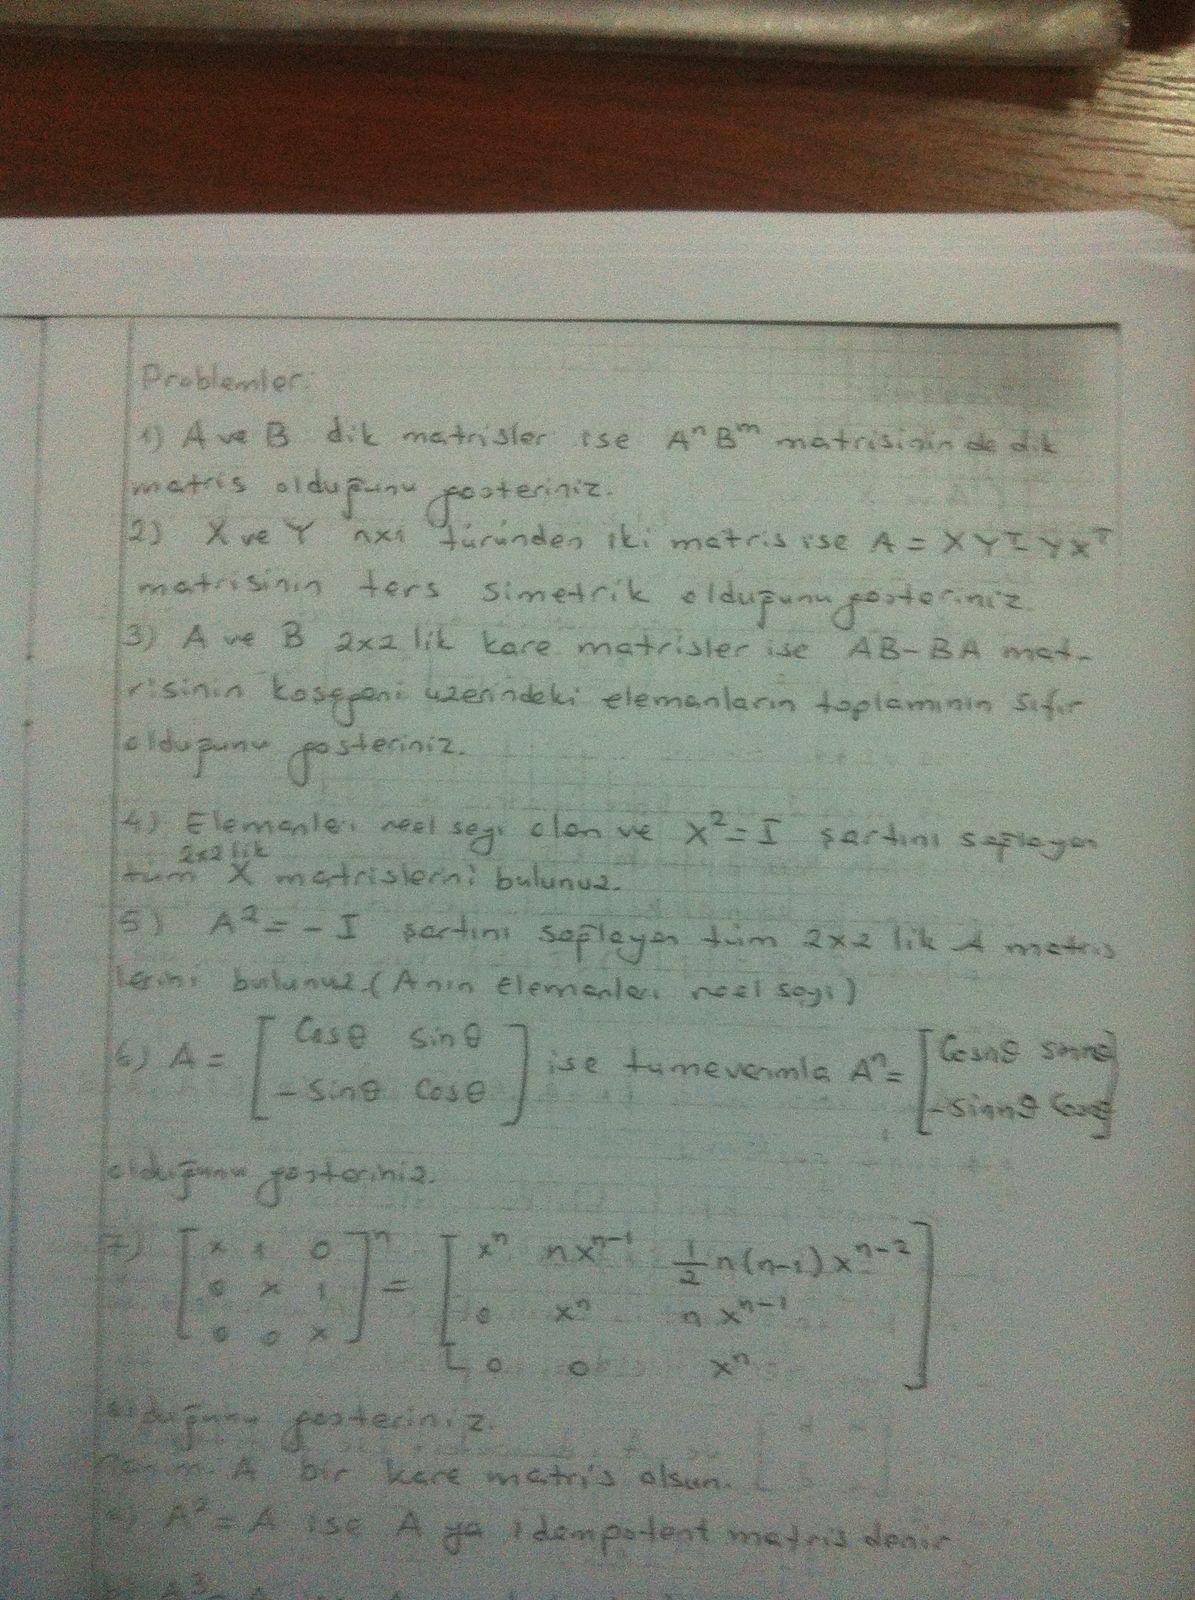 Problemler:
1) A ve B dik matrisler ise AⁿBᵐ matrisinin de dik
matris olduğunu gösteriniz.
2) X ve Y nx1 türünden iki matris ise A = XYᵀ-YXᵀ
matrisinin ters simetrik olduğunu gösteriniz.
3) A ve B 2x2 lik kare matrisler ise AB-BA mat-
risinin köşegeni üzerindeki elemanların toplamının sıfır
olduğunu gösteriniz.
4) Elemanları reel sayı olan ve X² = I şartını sağlayan
2x2 lik
tüm X matrislerini bulunuz.
5) A² = -I şartını sağlayan tüm 2x2 lik A matris
lerini bulunuz. (Anın Elemanları reel sayı)
6) A = [ Cosθ Sinθ ] ise tümevarımla Aⁿ = [ Cosnθ sinnθ ]
[ -Sinθ Cosθ ] [ -Sinnθ Cosnθ ]
olduğunu gösteriniz.
7) [ x 1 0 ]ⁿ = [ xⁿ nxⁿ⁻¹ 1/2 n(n-1)xⁿ⁻² ]
[ 0 x 1 ] [ 0 xⁿ nxⁿ⁻¹ ]
[ 0 0 x ] [ 0 0 xⁿ ]
olduğunu gösteriniz.
Tanım: A bir kare matris olsun.
a) A² = A ise A ya idempotent matris denir